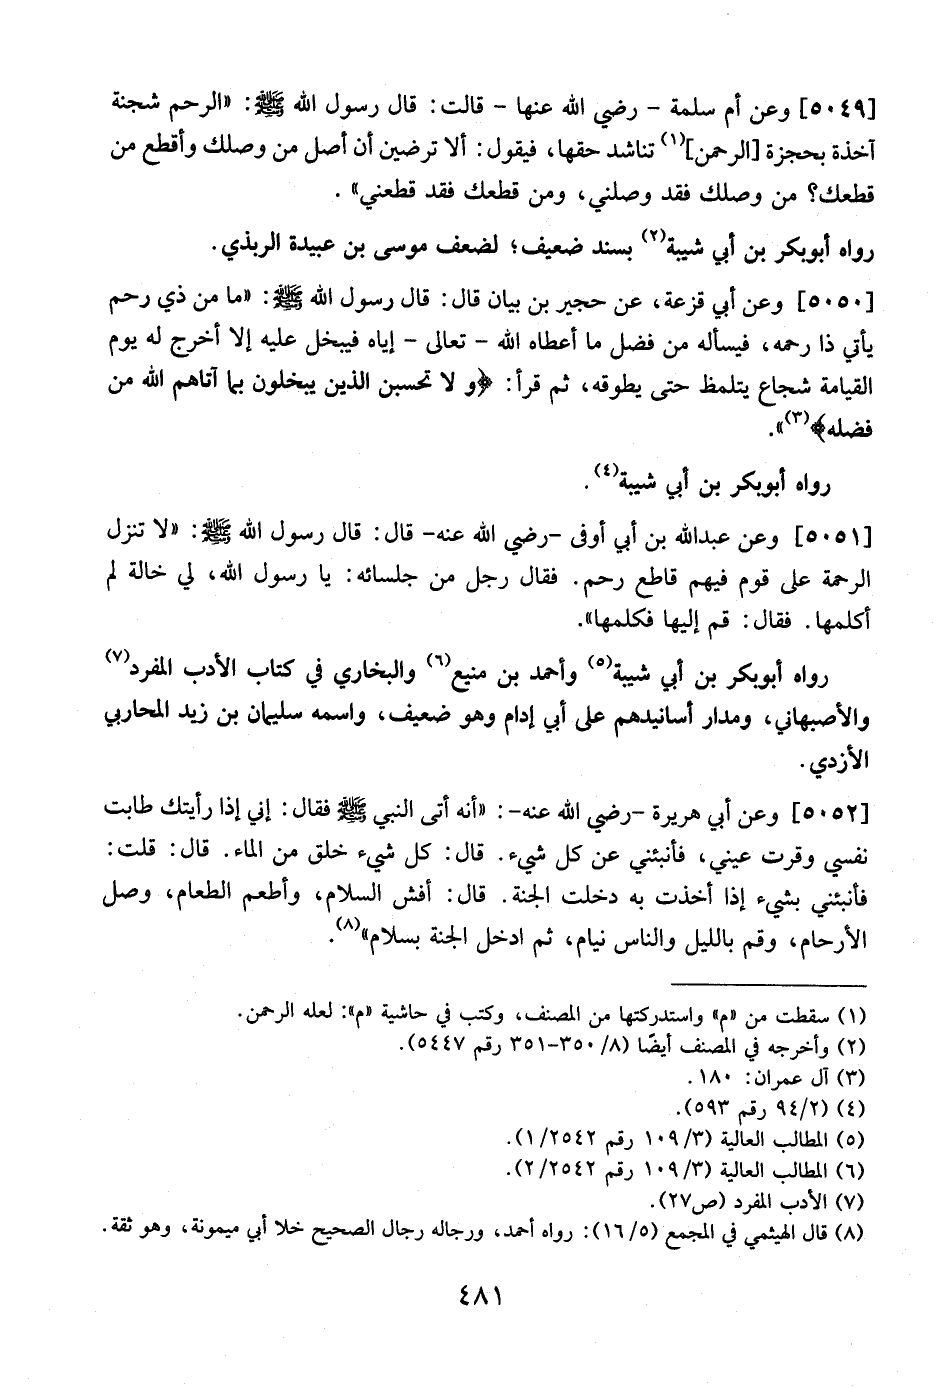 [٥٠٤٩] وعن أم سلمة - رضي الله عنها - قالت: قال رسول الله ﷺ: «الرحم شجنة
آخذة بحجزة [الرحمن](١) تناشد حقها، فيقول: ألا ترضين أن أصل من وصلك وأقطع من
قطعك؟ من وصلك فقد وصلني، ومن قطعك فقد قطعني» .
رواه أبوبكر بن أبي شيبة(٢) بسند ضعيف؛ لضعف موسى بن عبيدة الربذي.
[٥٠٥٠] وعن أبي قزعة، عن حجير بن بيان قال: قال رسول الله ﷺ: «ما من ذي رحم
يأتي ذا رحمه، فيسأله من فضل ما أعطاه الله - تعالى - إياه فيبخل عليه إلا أخرج له يوم
القيامة شجاع يتلمظ حتى يطوقه، ثم قرأ: ﴿و لا تحسبن الذين يبخلون بما آتاهم الله من
فضله﴾(٣)».
رواه أبوبكر بن أبي شيبة(٤).
[٥٠٥١] وعن عبدالله بن أبي أوفى -رضي الله عنه- قال: قال رسول الله ﷺ: «لا تنزل
الرحمة على قوم فيهم قاطع رحم. فقال رجل من جلسائه: يا رسول الله، لي خالة لم
أكلمها. فقال: قم إليها فكلمها».
رواه أبوبكر بن أبي شيبة(٥) وأحمد بن منيع(٦) والبخاري في كتاب الأدب المفرد(٧)
والأصبهاني، ومدار أسانيدهم على أبي إدام وهو ضعيف، واسمه سليمان بن زيد المحاربي
الأزدي.
[٥٠٥٢] وعن أبي هريرة -رضي الله عنه-: «أنه أتى النبي ﷺ فقال: إني إذا رأيتك طابت
نفسي وقرت عيني، فأنبئني عن كل شيء. قال: كل شيء خلق من الماء. قال: قلت:
فأنبئني بشيء إذا أخذت به دخلت الجنة. قال: أفش السلام، وأطعم الطعام، وصل
الأرحام، وقم بالليل والناس نيام، ثم ادخل الجنة بسلام»(٨).
(١) سقطت من «م» واستدركتها من المصنف، وكتب في حاشية «م»: لعله الرحمن.
(٢) وأخرجه في المصنف أيضًا (٨/ ٣٥٠-٣٥١ رقم ٥٤٤٧).
(٣) آل عمران: ١٨٠.
(٤) (٢/ ٩٤ رقم ٥٩٣).
(٥) المطالب العالية (٣/ ١٠٩ رقم ٢٥٤٢/ ١).
(٦) المطالب العالية (٣/ ١٠٩ رقم ٢٥٤٢/ ٢).
(٧) الأدب المفرد (ص٢٧).
(٨) قال الهيثمي في المجمع (٥/ ١٦): رواه أحمد، ورجاله رجال الصحيح خلا أبي ميمونة، وهو ثقة.
٤٨١